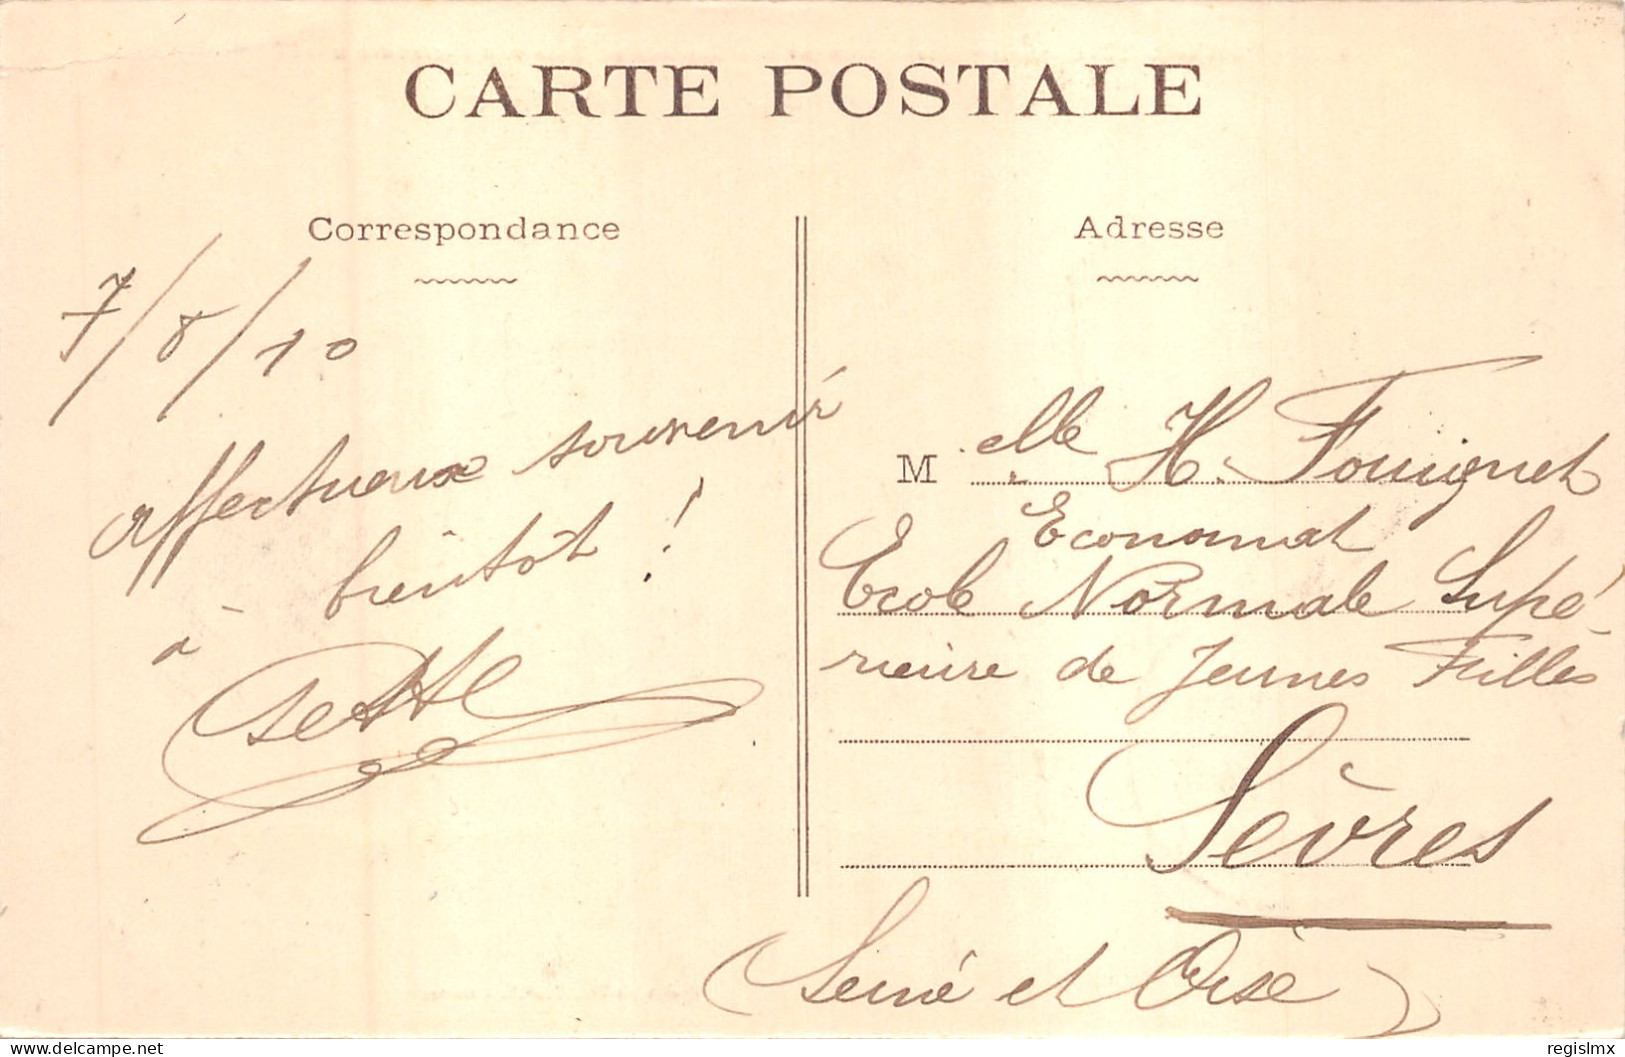 CARTE POSTALE
Correspondance
7/8/10
affectueux souvenir
à bientôt !
Adresse
Melle H. Fouignet
Economat
Ecole Normale Supé-
rieure de Jeunes Filles
Sèvres
(Seine et Oise)
www.delcampe.net
regislmx